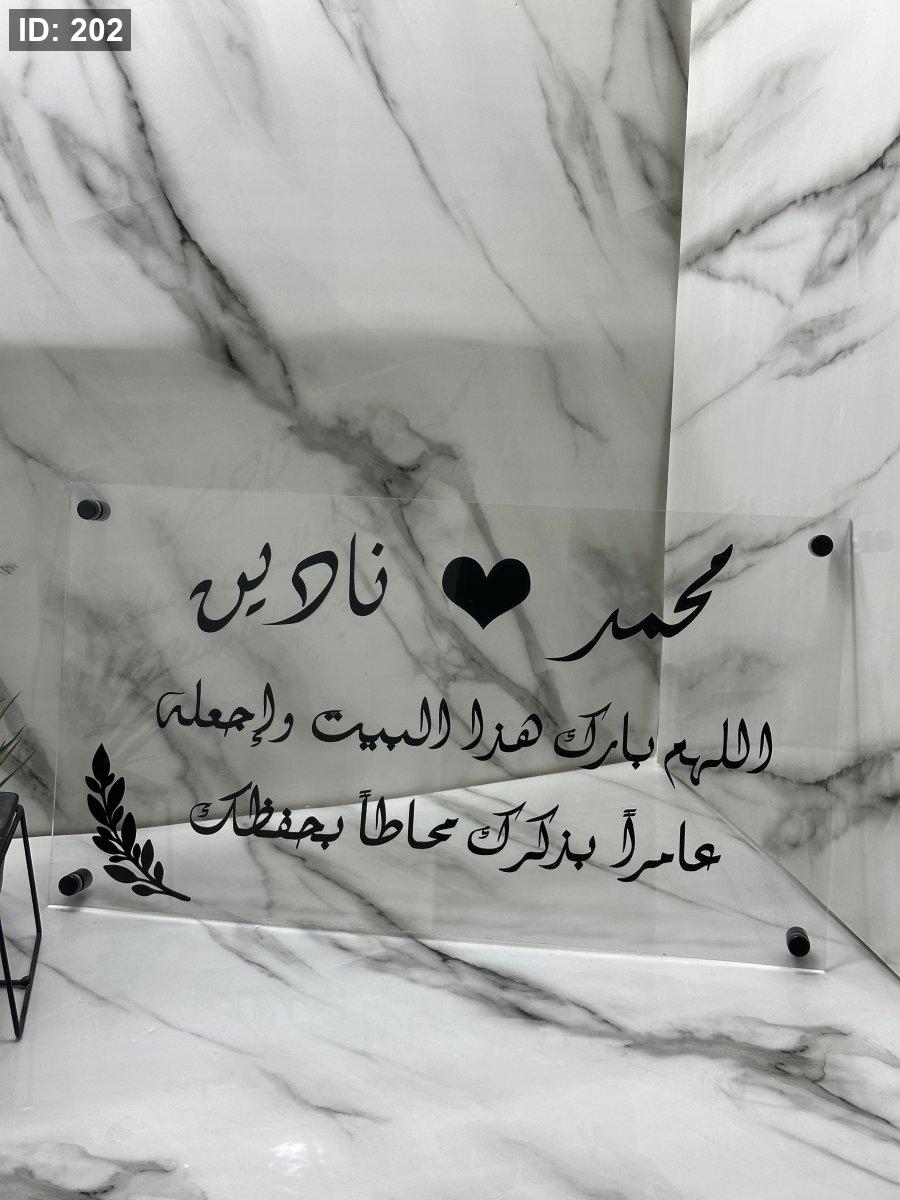 ID: 202
محمد ♥ نادين
اللهم بارك هذا البيت وإجعله
عامراً بذكرك محاطاً بحفظك